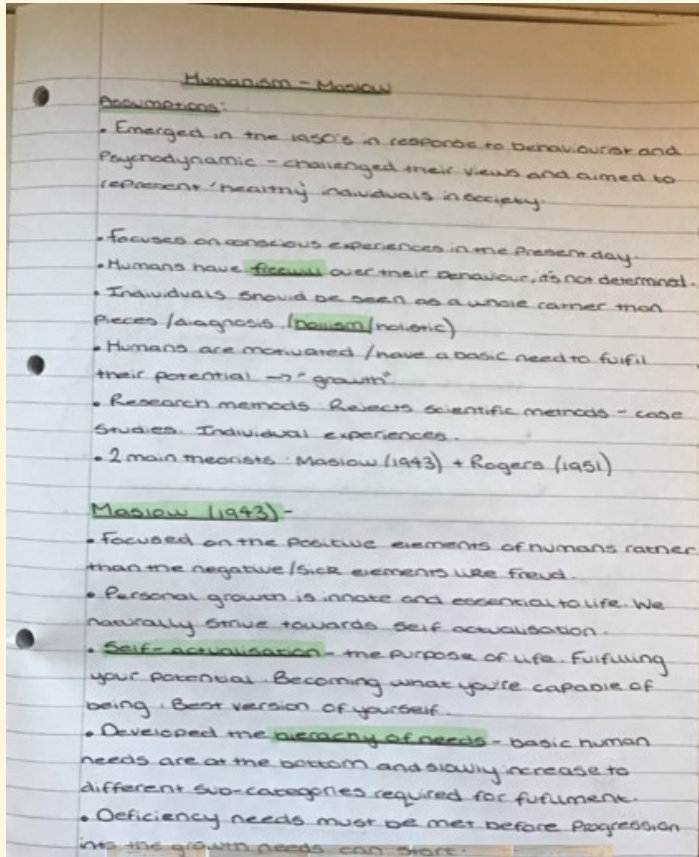 Humanism - Maslow
Assumptions:
• Emerged in the 1950's in response to behaviourist and
Psychodynamic - challenged their views and aimed to
represent 'healthy' individuals in society.
• Focuses on conscious experiences in the present day.
• Humans have freewill over their behaviour, it's not determined.
• Individuals should be seen as a whole rather than
pieces/diagnosis (holism/holistic)
• Humans are motivated/have a basic need to fulfil
their potential → "growth".
• Research methods: Rejects scientific methods - case
studies. Individual experiences.
• 2 main theorists: Maslow (1943) + Rogers (1951)
Maslow (1943) -
• Focused on the positive elements of humans rather
than the negative/sick elements like Freud.
• Personal growth is innate and essential to life. We
naturally strive towards self actualisation.
• Self-actualisation - the purpose of life. Fulfilling
your potential. Becoming what you're capable of
being. Best version of yourself.
• Developed the hierachy of needs - basic human
needs are at the bottom and slowly increase to
different sub-categories required for fufilment.
• Deficiency needs must be met before progression
into the growth needs can start.